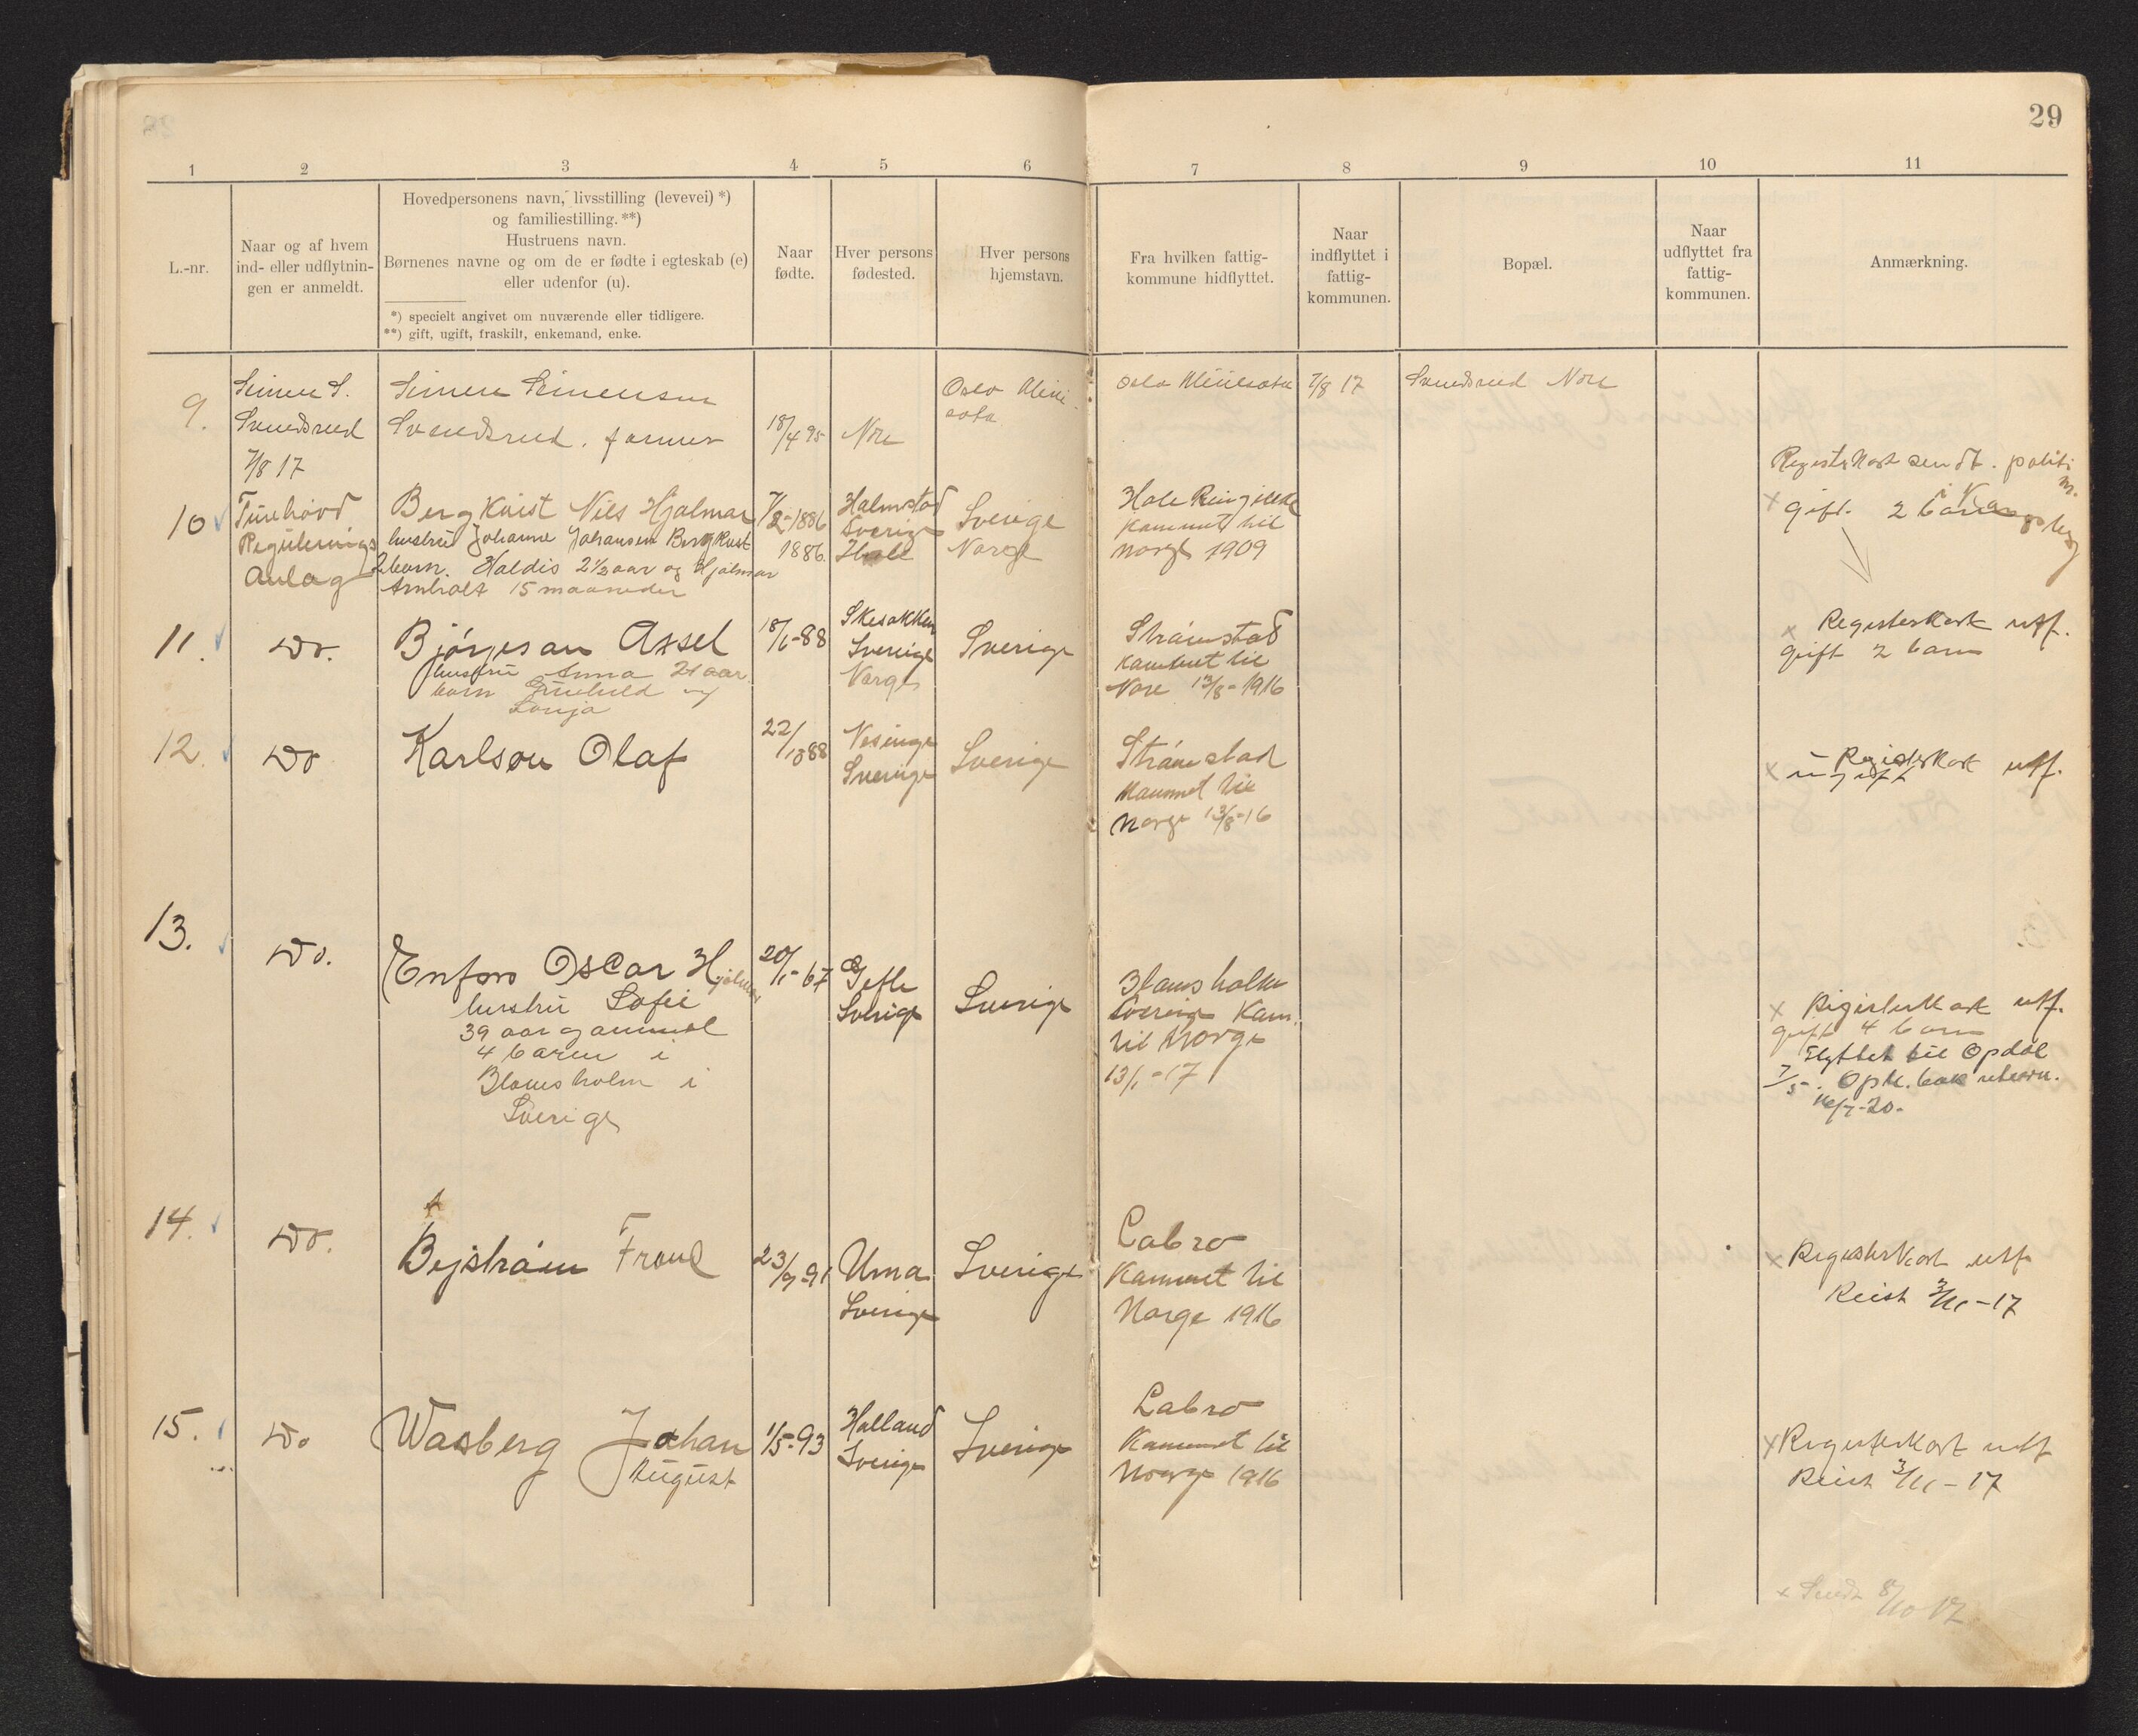 29
1 2 3 4 5 6 7 8 9 10 11
L.-nr.
Naar og af hvem
ind- eller udflytnin-
gen er anmeldt.
Hovedpersonens navn, livsstilling (levevei) *)
og familiestilling. **)
Hustruens navn.
Børnenes navne og om de er fødte i egteskab (e)
eller udenfor (u).
*) specielt angivet om nuværende eller tidligere.
**) gift, ugift, fraskilt, enkemand, enke.
Naar
fødte.
Hver persons
fødested.
Hver persons
hjemstavn.
Fra hvilken fattig-
kommune hidflyttet.
Naar
indflyttet i
fattig-
kommunen.
Bopæl.
Naar
udflyttet fra
fattig-
kommunen.
Anmærkning.
9.
Simen S.
Svendsrud
7/8 17
Simen Simensen
Svendsrud. farmer
18/4 95
Nore
Oslo Mini
sota
Oslo Minisota
7/8 17
Svendsrud Nore
10
Tunhövd
Regulerings
Anlag
Bergkvist Niels Hjalmar
hustru Johanne Johansen Bergkvist
2 barn. Haldis 2 1/2 aar og Hjalmar
Arnholt 15 maaneder
7/2-1886
1886
Halmstad
Sverige
Hole
Sverige
Norge
Hole Ringerike
kommet til
Norge 1909
Registerkort sendt. politim.
i Kongsberg
x gift. 2 barn
11.
Do.
Bjørgesan Axsel
hustru Anna 21 aar
barn Gunhild og
Sonja
18/1-88
Sverige
Norge
Sverige
Strömstad
Kommet til
Nore 13/8-1916
x Registerkort utf.
gift 2 barn
12.
Do
Karlson Olaf
22/10 88
Vesinge
Sverige
Sverige
Strömstad
Kommet til
Norge 13/8-16
x Registerkort utf.
ugift
13.
Do.
Enfors Oscar Hjalmar
hustru Sofie
39 aar gammel
4 barn i
Blomsholm i
Sverige
20/1-67
Gefle
Sverige
Sverige
Blomsholm
Sverige Kom.
til Norge
13/1-17
x Registerkort utf.
gift 4 barn
Flyttet til Opdal
7/5. Oph. bok utlevr.
16/7-20.
14.
Do.
Bejström Frank
23/9-91
Uma
Sverige
Sverige
Labro
Kommet til
Norge 1916
x Registerkort utf
Reist 3/11-17
15.
Do
Wasberg Johan
August
1/5-93
Halland
Sverige
Sverige
Labro
Kommet til
Norge 1916
x Registerkort utf
Reist 3/11-17
x Sendt 8/10 17